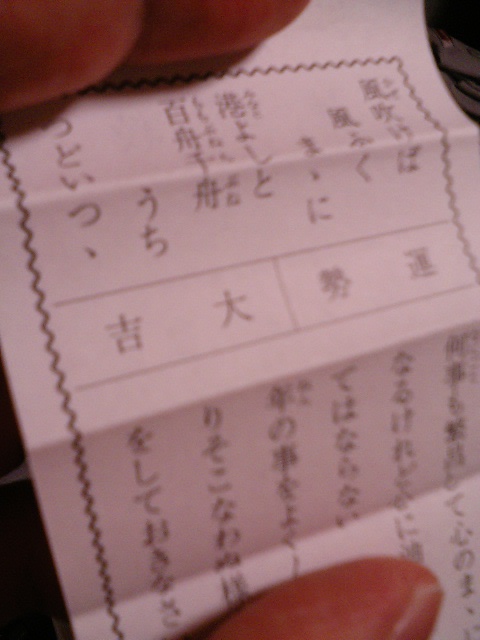 風吹けば
風ふく
まゝに
港よしと
百舟千舟
うち
つどいつゝ
運勢
大吉
何事も繁昌して心のまゝに
なるけれど
てはならない
年の事をよく
りそこなわぬ様
をしておる